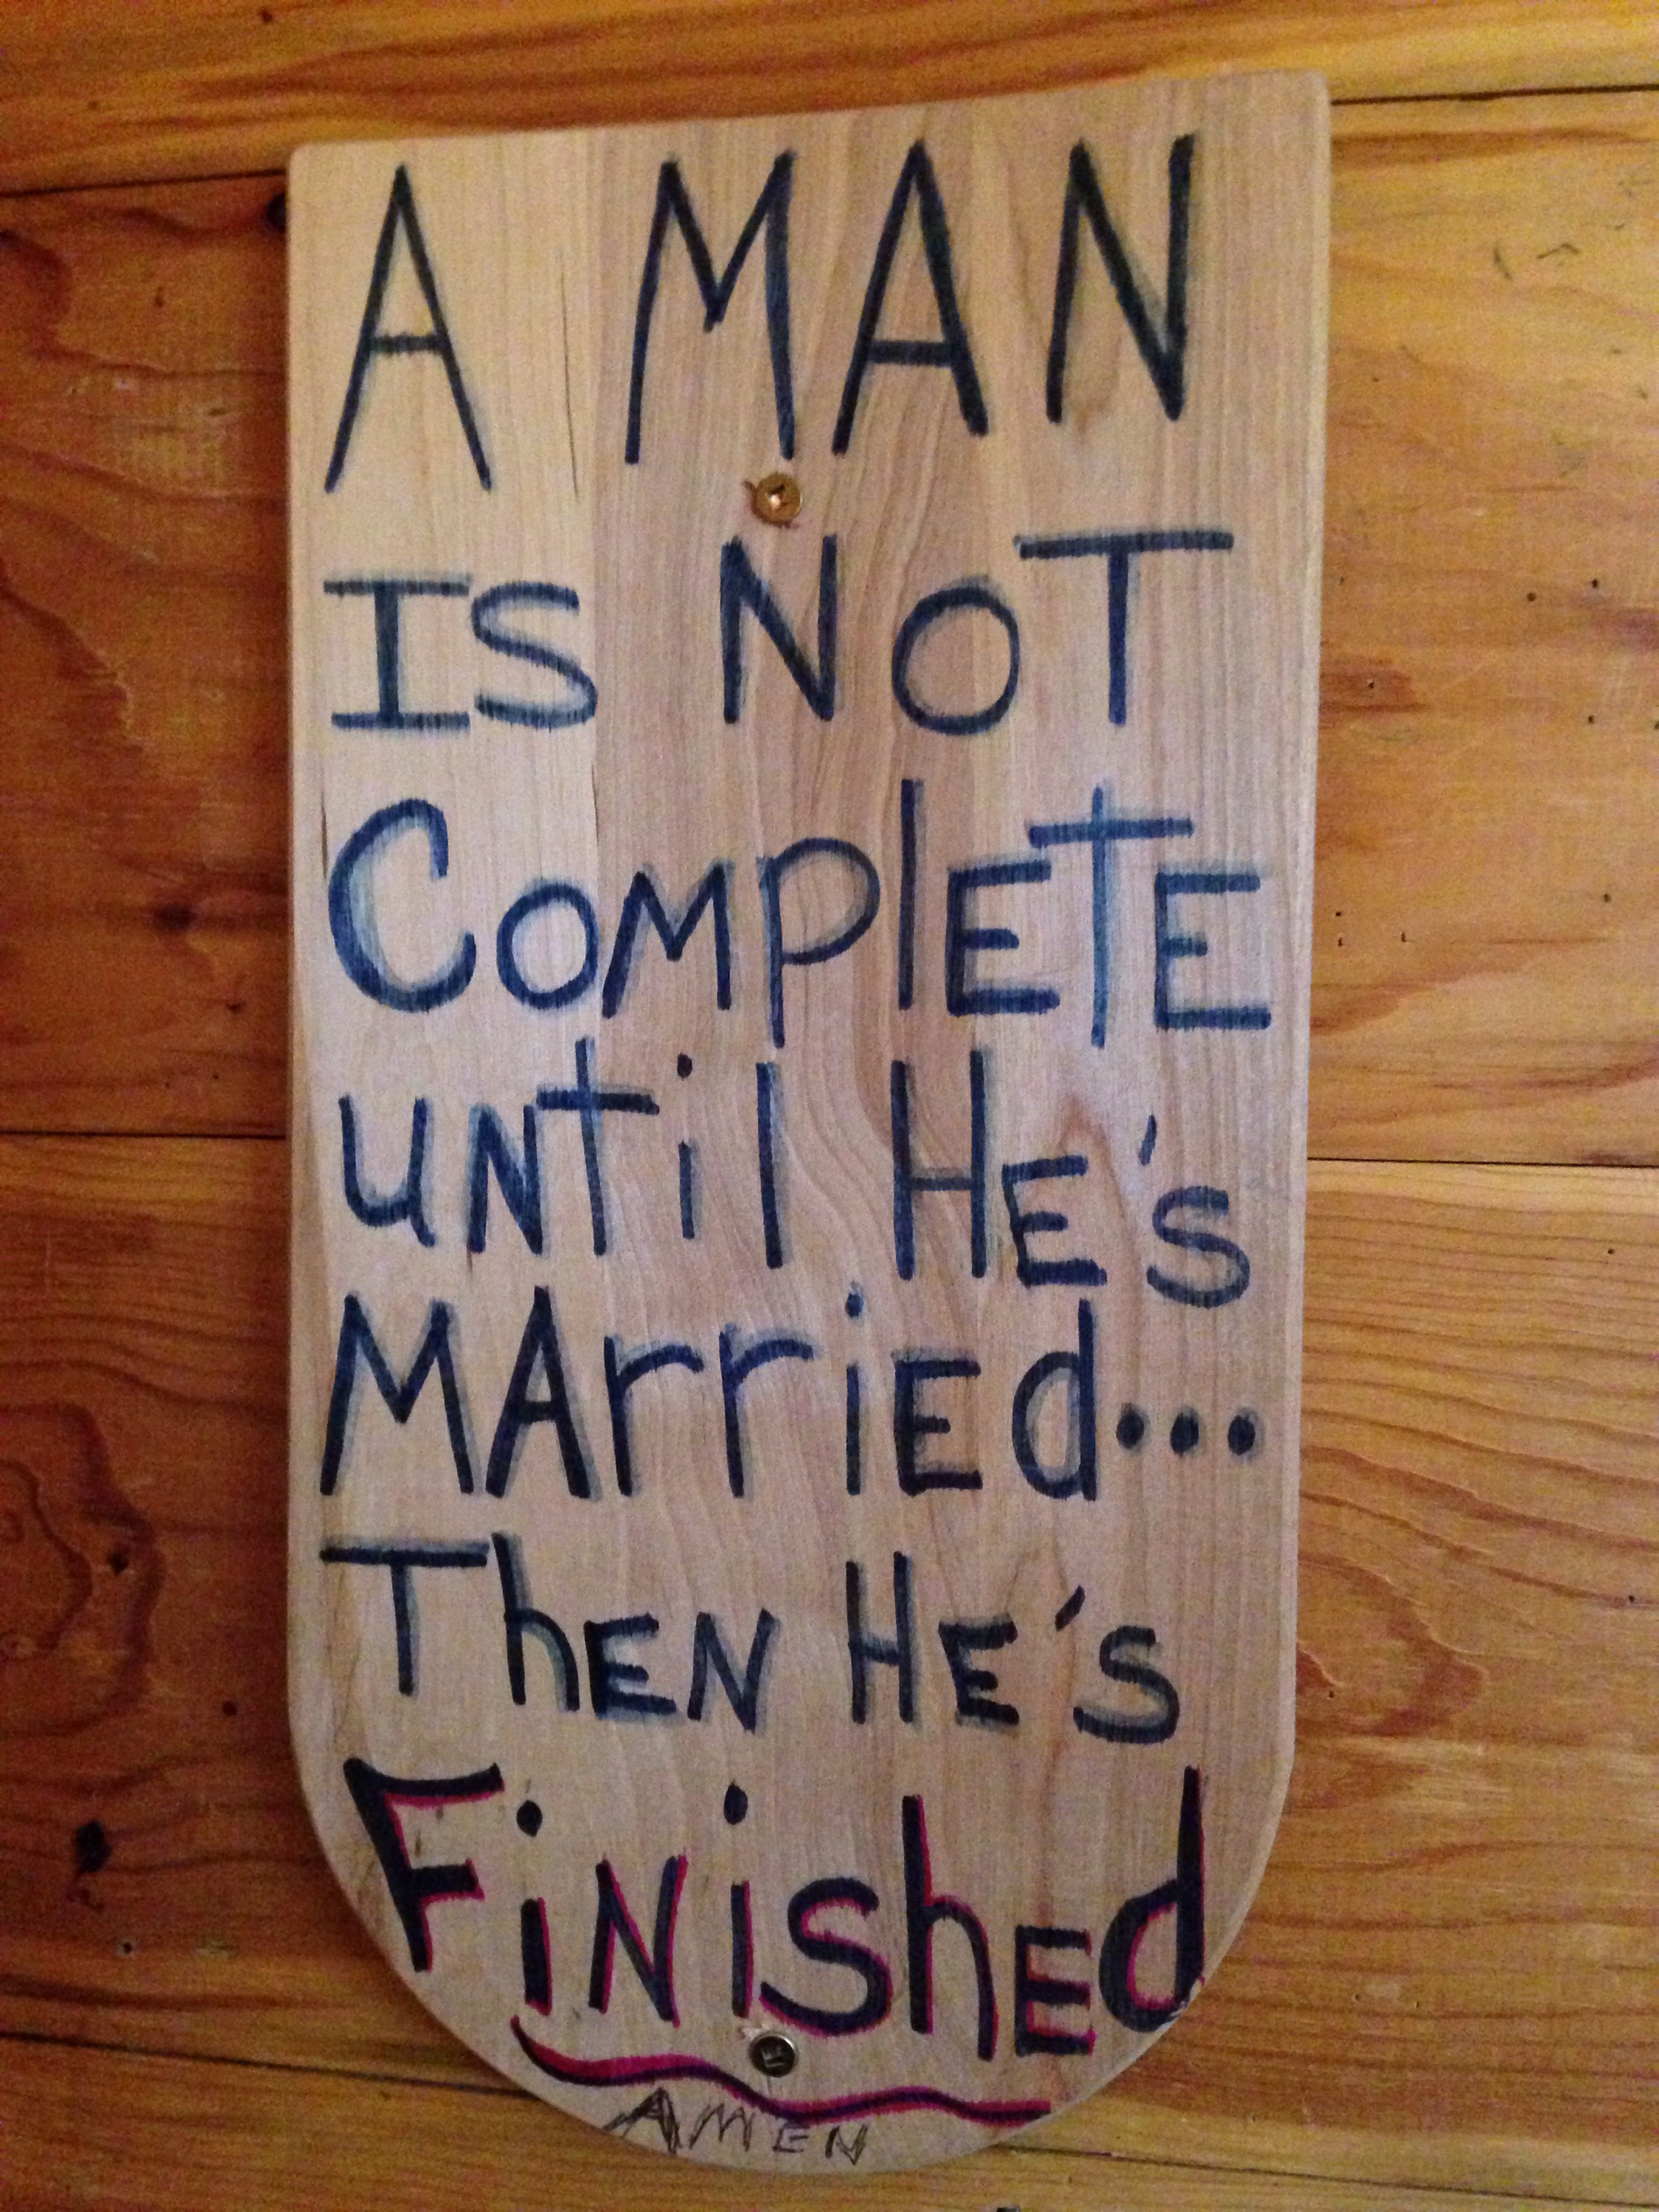 A MAN
IS NOT
ComplETE
until HE's
MArriEd...
ThEN HE's
FiNishEd
AMEN